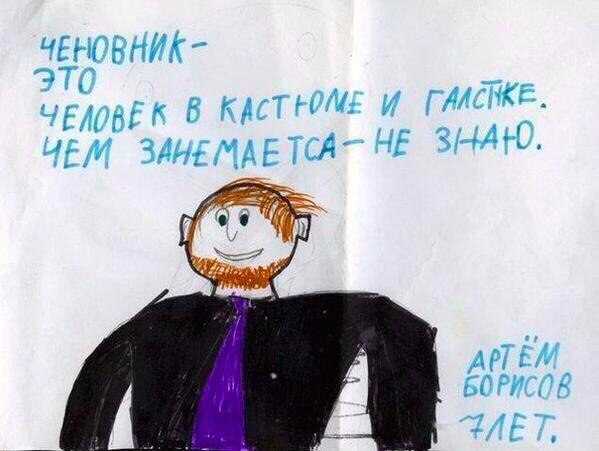 ЧЕНОВНИК-
ЭТО
ЧЕЛОВЕК В КАСТЮМЕ И ГАЛСТКЕ.
ЧЕМ ЗАНЕМАЕТСА-НЕ ЗНАЮ.
АРТЁМ
БОРИСОВ
7 ЛЕТ.